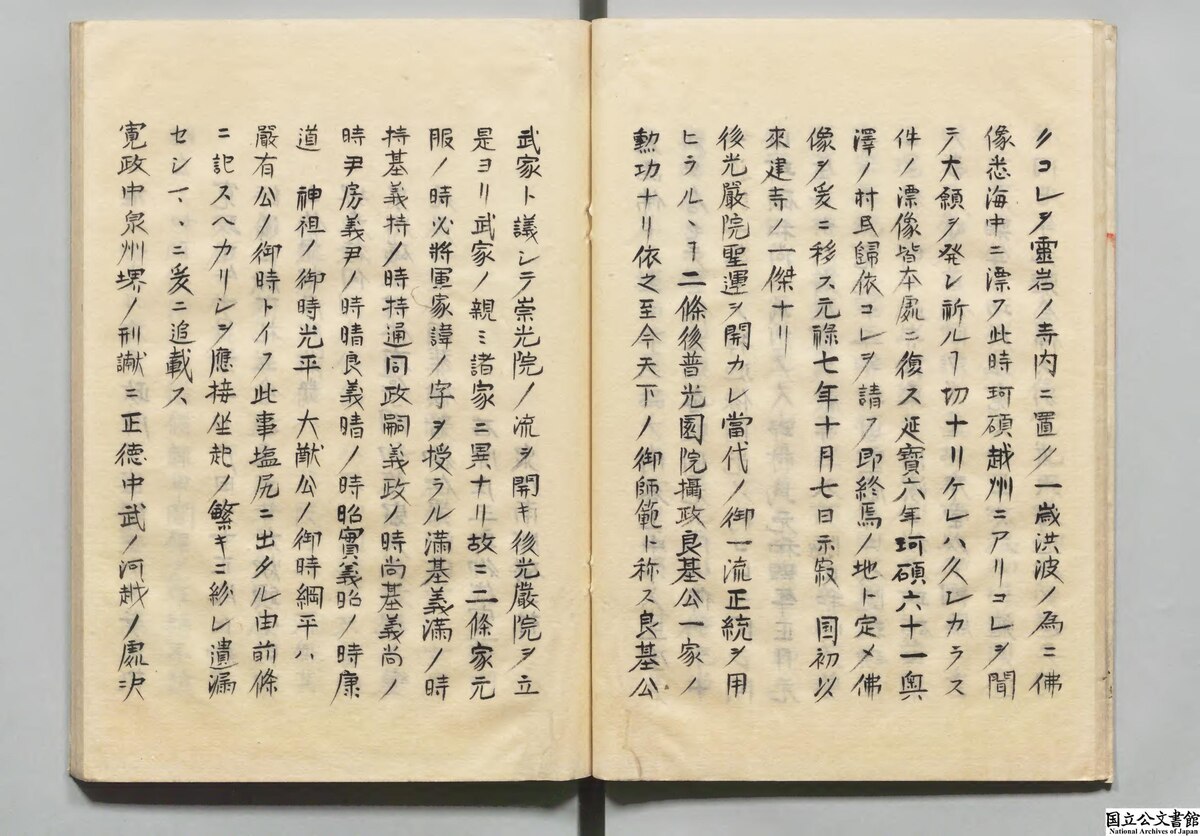 〆コレヲ靈岩ノ寺内ニ置〆一歳洪波ノ為ニ佛
像悉海中ニ漂フ此時珂碩越州ニアリコレヲ聞
テ大願ヲ発シ祈ルヿ切ナリケレハ久シカラス
件ノ漂像皆本處ニ復ス延寶六年珂碩六十一奥
澤ノ村民歸依コレヲ請フ即終焉ノ地ト定メ佛
像ヲ爰ニ移ス元祿七年十月七日示寂国初以
來建寺ノ一傑ナリ
後光嚴院聖運ヲ開カレ當代ノ御一流正統ヲ用
ヒラルヽヿ二條後普光園院攝政良基公一家ノ
勲功ナリ依之至今天下ノ御師範ト称ス良基公
武家ト議シテ崇光院ノ流ヲ開キ後光嚴院ヲ立
是ヨリ武家ノ親ミ諸家ニ異ナリ故ニ二條家元
服ノ時必將軍家諱ノ字ヲ授ラル滿基義滿ノ時
持基義持ノ時持通同政嗣義政ノ時尚基義尚ノ
時尹房義尹ノ時晴良義晴ノ時昭實義昭ノ時康
道　神祖ノ御時光平　大猷公ノ御時綱平ハ
嚴有公ノ御時トイフ此事塩尻ニ出タル由前條
ニ記スヘカリシヲ應接坐起ノ繁キニ紛レ遺漏
セシマヽニ爰ニ追載ス
寛政中泉州堺ノ刑讞ニ正德中武ノ河越ノ處决
国立公文書館
National Archives of Japan